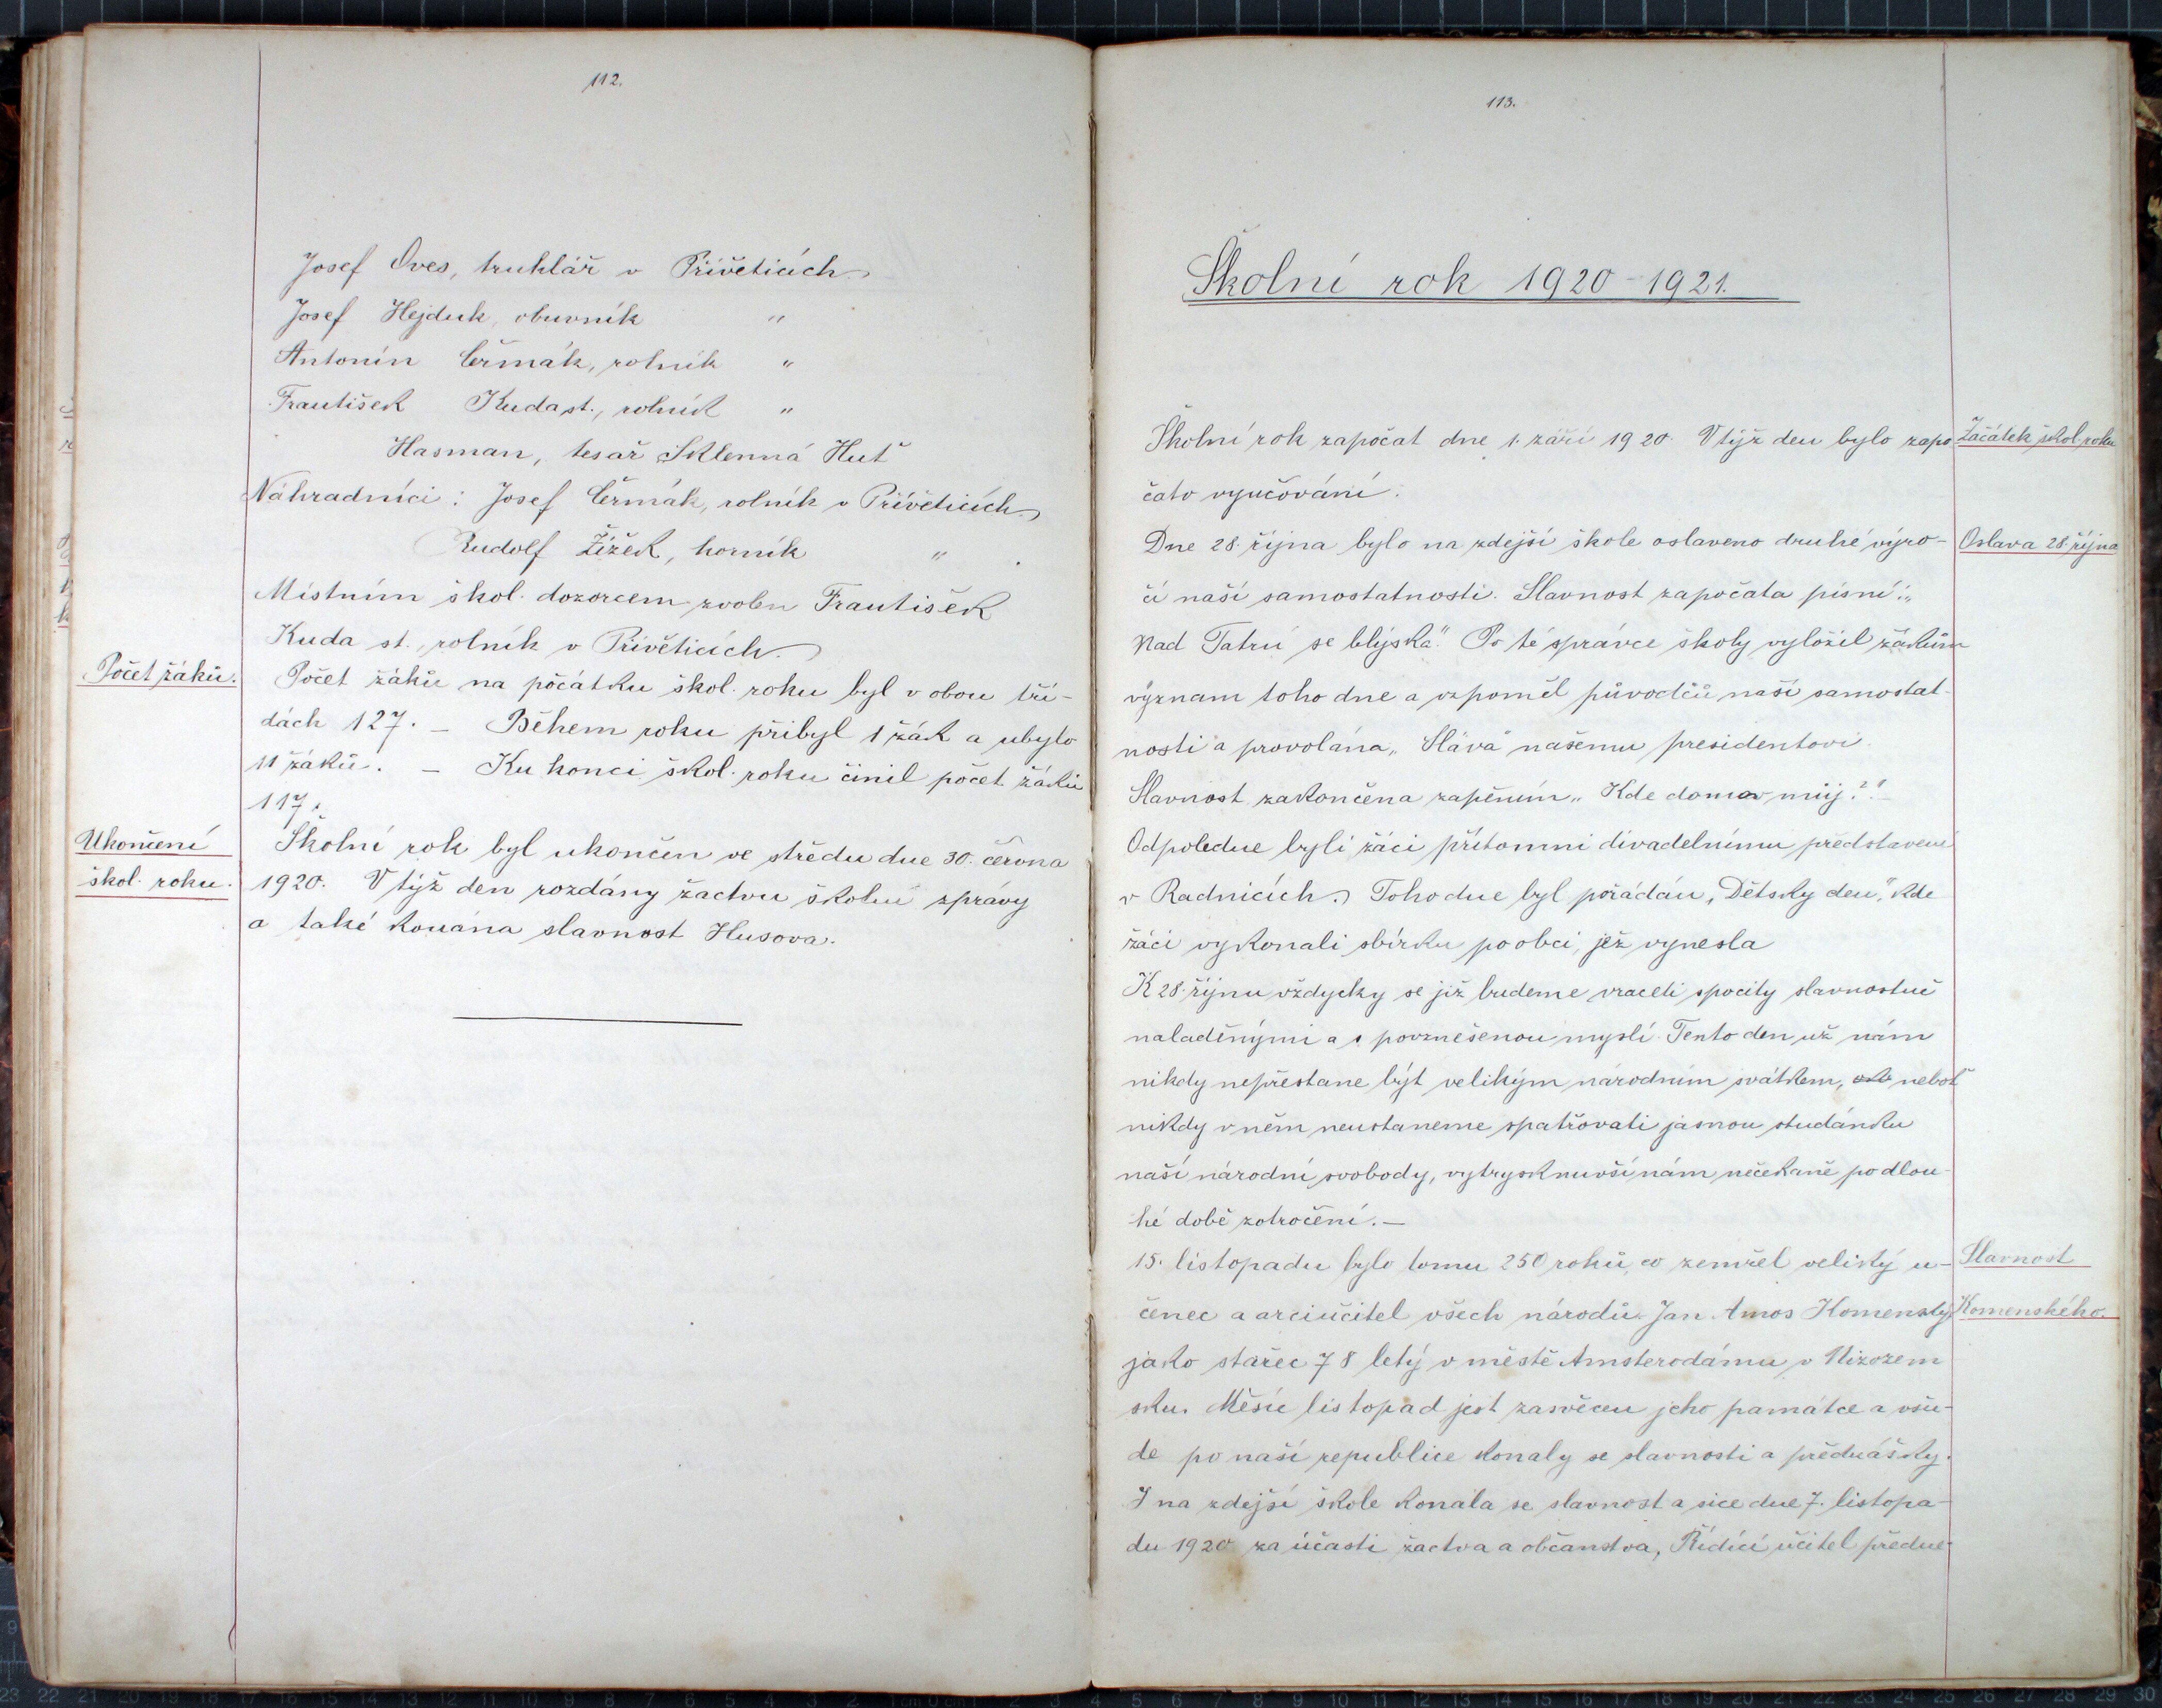 112.
Josef Oves, truhlář v Přívěticích.
Josef Hejduk, obuvník "
Antonín Čermák, rolník "
František Kuda st., rolník "
Hasman, tesař Sklenná Huť
Náhradníci: Josef Čermák, rolník v Přívěticích.
Rudolf Žížek, horník "
Místním škol. dozorcem zvolen František
Kuda st., rolník v Přívěticích.
Počet žáků.
Počet žáků na počátku škol. roku byl v obou tří-
dách 127. – Během roku přibyl 1 žák a ubylo
11 žáků. – Ku konci škol. roku činil počet žáků
117.
Ukončení
škol. roku.
Školní rok byl ukončen ve středu dne 30. června
1920. V týž den rozdány žactvu školní zprávy
a také konána slavnost Husova.
113.
Školní rok 1920-1921.
Školní rok započat dne 1. září 1920. V týž den bylo zapo
Začátek škol. roku
čato vyučování.
Dne 28. října bylo na zdejší škole oslaveno druhé výro-
Oslava 28. října
čí naší samostatnosti. Slavnost započata písní: „
Nad Tatrú se blýská." Po té správce školy vyložil žákům
význam toho dne a vzpoměl původčů naší samostat-
nosti a provolána „Sláva" našemu presidentovi.
Slavnost zakončena zapěním „Kde domov můj?" –
Odpoledne byli žáci přítomni divadelnímu představení
v Radnicích. Toho dne byl pořádán „Dětský den", kde
žáci vykonali sbírku po obci, jež vynesla
K 28. říjnu vždycky se již budeme vraceti s pocity slavnostně
naladěnými a s povznešenou myslí. Tento den už nám
nikdy nepřestane být velikým národním svátkem, neboť
nikdy v něm neustaneme spatřovati jasnou studánku
naší národní svobody, vytrysknuvší nám nečekaně po dlou-
hé době zotročení. –
15. listopadu bylo tomu 250 roků, co zemřel veliký u-
Slavnost
čenec a arciučitel všech národů Jan Amos Komenský,
Komenského.
jako stařec 78 letý v městě Amsterodámu v Nizozem
sku. Měsíc listopad jest zasvěcen jeho památce a všu-
de po naší republice konaly se slavnosti a přednášky.
I na zdejší škole konala se slavnost a sice dne 7. listopa-
du 1920 za účasti žactva a občanstva, Řídící učitel předne-